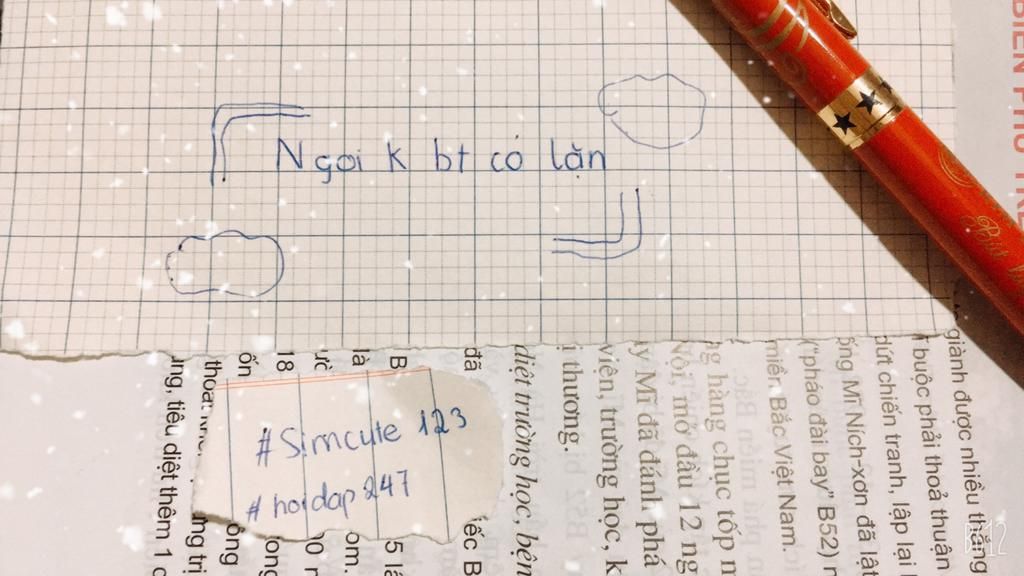 Ngoi k bt có lặn
#Simcute 123
#hoidap247
giành được nhiều thắng
buộc phải thoả thuận
dứt chiến tranh, lập lại
ống Mĩ Ních-xơn đã lật
("pháo đài bay" B52)
miền Bắc Việt Nam.
g hàng chục tốp m
Nội, mở đầu 12 ng
y Mĩ đã đánh phá
viện, trường học, k
i thương.
diệt trường học, bện
đã
B
là
18
ốn
thoả
ung, tiêu diệt thêm 1 c
ng trị
ông
00 n
om.
5 lầ
iếc B
BIẾN PHÚ TRÊ
B612